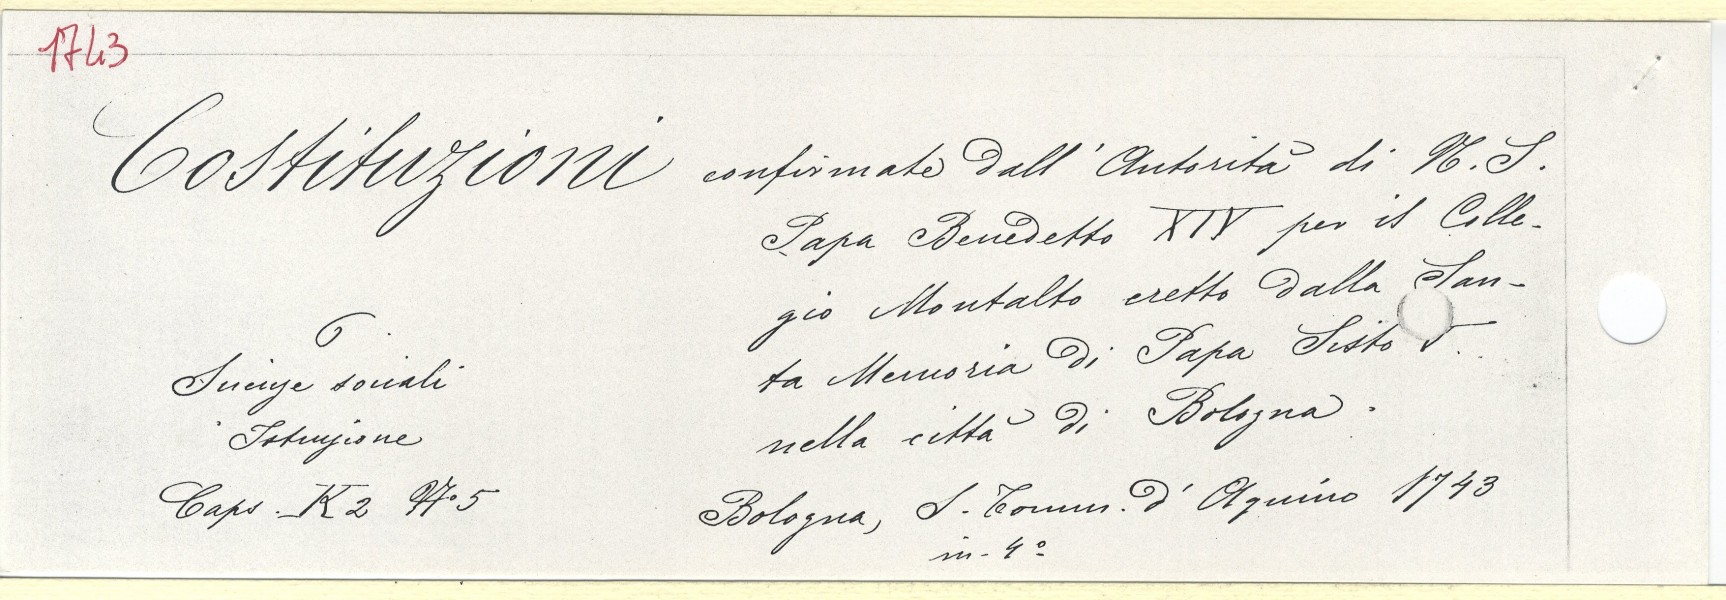 1743
Costituzioni confirmate dall' Autorità di N. S.
Papa Benedetto XIV per il Colle-
gio Montalto eretto dalla San-
ta Memoria di Papa Sisto V.
nella città di Bologna.
6
Scienze sociali
Istruzione
Caps. K2 N.o 5
Bologna, S. Tomm. d' Aquino 1743
in-4º